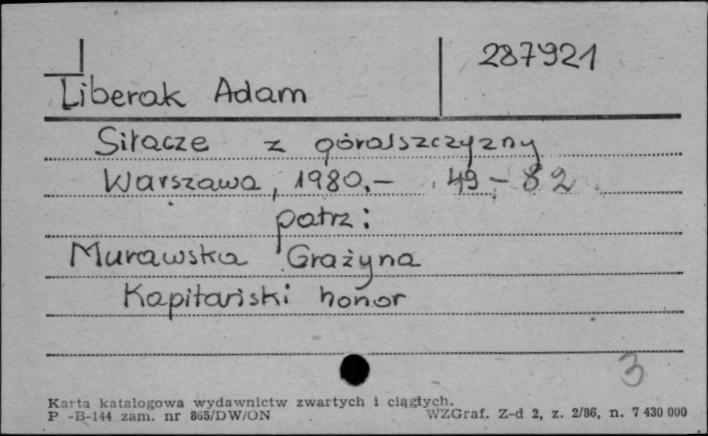 287921
Liberak Adam
Siłacze z góralszczyzny
Warszawa, 1980.- 49-82
patrz:
Murawska Grażyna
Kapitański honor
3
Karta katalogowa wydawnictw zwartych i ciągłych.
P -B-144 zam. nr 865/DW/ON WZGraf. Z-d 2, z. 2/86, n. 7 430 000